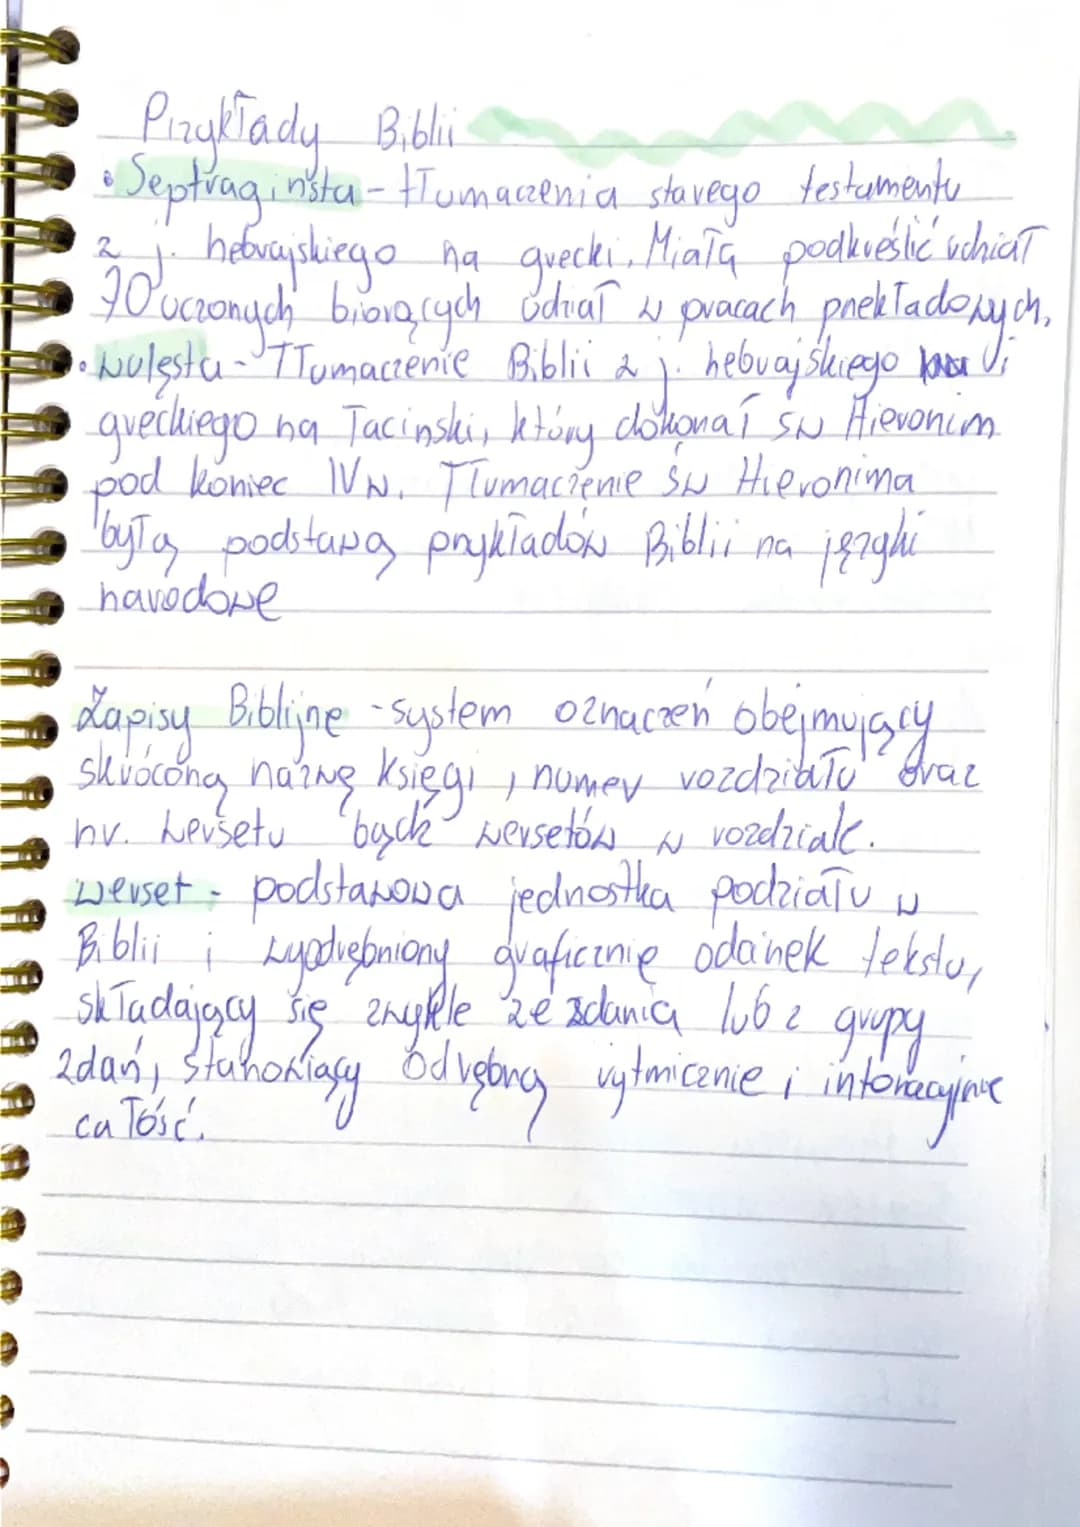 Przykłady Biblii
• Septraginsta - tłumaczenia starego testamentu
z j. hebrajskiego na grecki. Miała podkreślić udział
70 uczonych biorących udział w pracach przekładowych.
• Wulgata - Tłumaczenie Biblii z j. hebrajskiego i
greckiego na łacinski, który dokonał św Hieronim
pod koniec IVw. Tłumaczenie św Hieronima
była podstawą przykładów Biblii na języki
narodowe
Zapisy Biblijne - system oznaczeń obejmujący
skróconą nazwę księgi, numer rozdziału oraz
nr. wersetu bądź wersetów w rozdziale.
Werset - podstawowa jednostka podziału w
Biblii i wyodrębniony graficznie odcinek tekstu,
składający się zwykle ze zdania lub z grupy
zdań, stanowiący odrębną rytmicznie i intonacyjnie
całość.